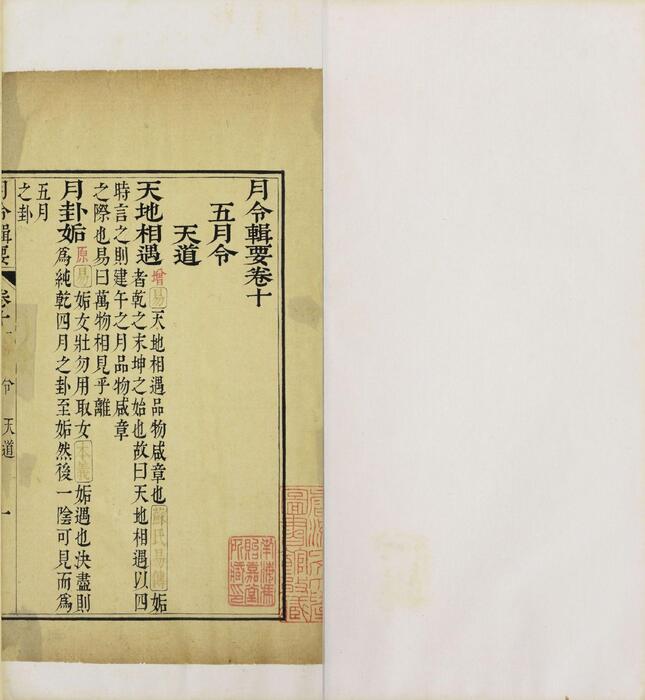 月令輯要卷十
五月令
天道
天地相遇增易天地相遇品物咸章也蘇氏易傳姤
者乾之末坤之始也故曰天地相遇以四
時言之則建午之月品物咸章
之際也易曰萬物相見乎離
月卦姤原易姤女壯勿用取女本義姤遇也決盡則
爲純乾四月之卦至姤然後一陰可見而爲
五月
之卦
月令輯要 卷十 令 天道 一
南潯馬
貽嘉堂
所藏印